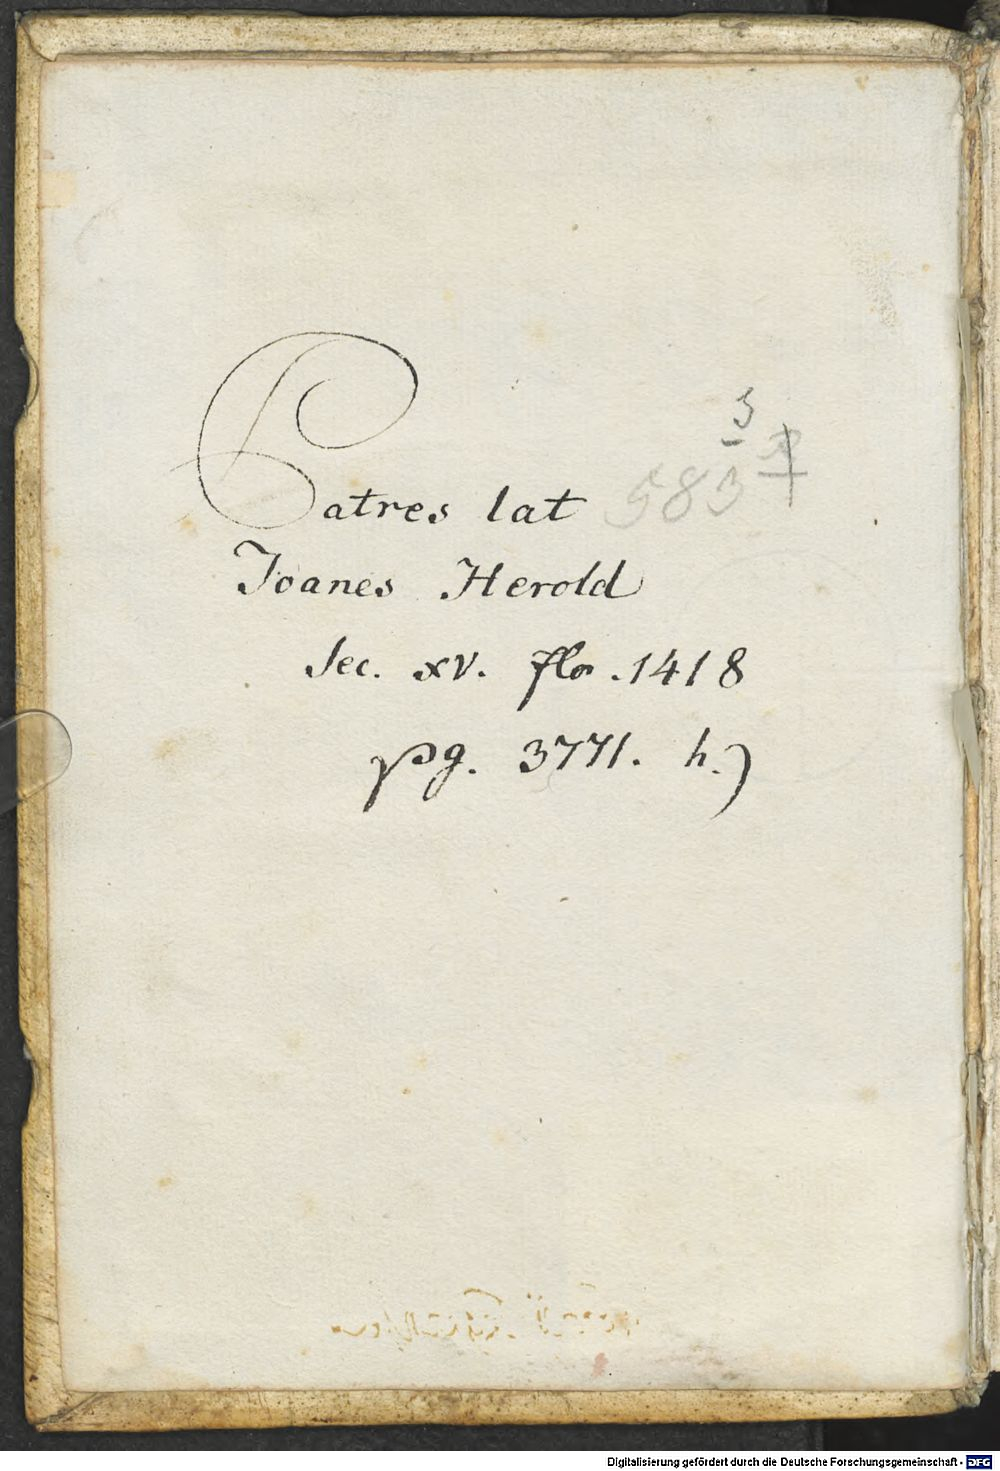 Patres lat 583
3
Joanes Herold
Sec. xv. flo. 1418
pg. 3771. h.)
Digitalisierung gefördert durch die Deutsche Forschungsgemeinschaft - DFG